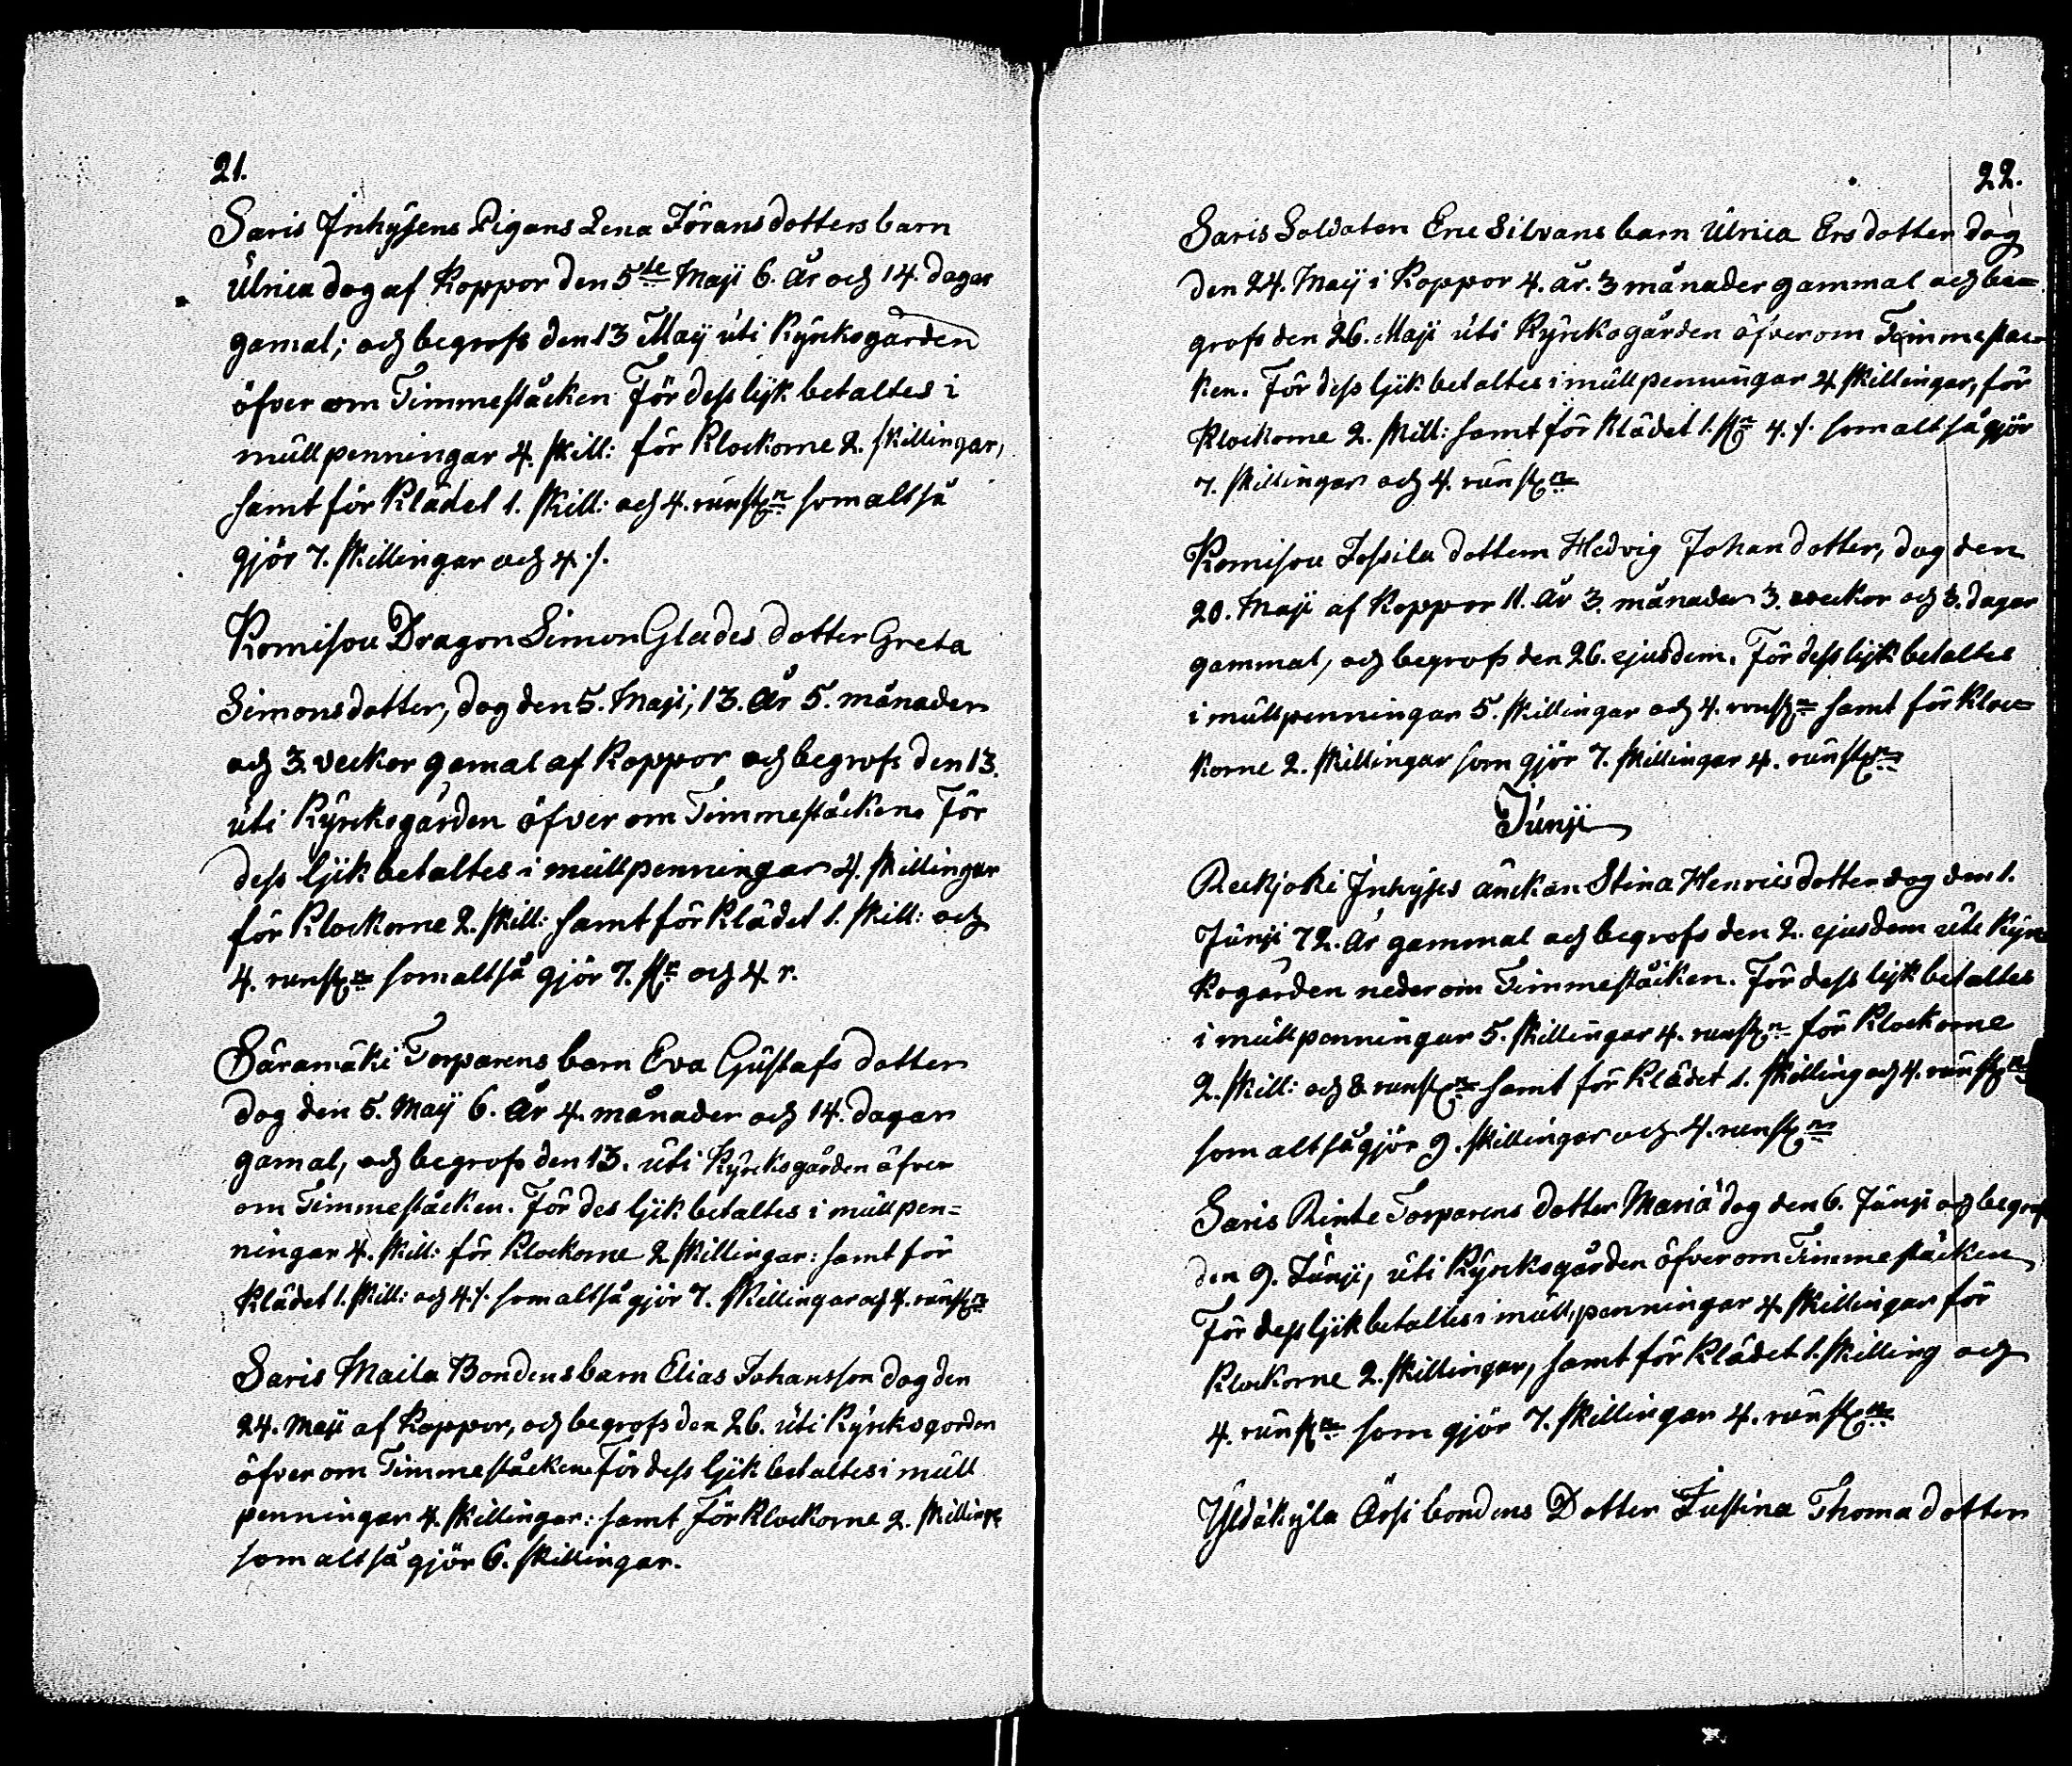 21.
Saris Inhysens Pigans Lena Jöransdotters barn
Ulrica dog af Koppor den 5te Maji 6. år och 14. dagar
gamal; och begrofs den 13 Maij uti Kyrkogården
öfver om Timmestäcken För dess lijk betaltes i
mullpenningar 4. skill: för Klockorne 2. skillingar,
samt för Klädet 1. skill: och 4. runstn som altså
gjör 7. skillingar och 4 ./.
Komisou Dragon Simon Glades dotter Greta
Simonsdotter, dog den 5. Maji, 13. år 5. månader
och 3. veckor gamal af Koppor och begrofs den 13.
uti Kyrkogården öfver om Timmestäcken. För
dess lijk betaltes i mullpenningar 4. skillingar
för Klockorne 2. skill: samt för Klädet 1. skill: och
4. runstn som altså gjör 7. sn och 4. r.
Säramäki Torparens barn Eva Gustafs dotter
dog den 5. Maij 6. år 4. månader och 14. dagar
gamal, och begrofs den 13. uti Kyrkogården öfver
om Timmestäcken. För des lijk betaltes i mullpen=
ningar 4. skill: för Klockorne 2 skillingar: samt för
Klädet 1. skill: och 4 ./. som altså gjör 7. skillingar och 4. runstn
Saris Maila Bondens barn Elias Johansson dog den
24. Maji af Koppor, och begrofs den 26. uti Kyrkogorden
öfver om Timmestäcken För dess lijk betaltes i mull
penningar 4. skillingar: samt För Klockorne 2. skillingr
som altså gjör 6. skillingar.
22.
Saris Soldaten Eric Silvans barn Ulrica Ersdotter dog
den 24. Maij i Koppor 4. år. 3 månader gammal och be=
grofs den 26. Maji uti Kyrkogården öfver om Timmestäc=
ken. För dess lijk betaltes i mullpenningar 4 skillingar, för
Klockorne 2. skill: samt för Klädet 1. sn 4 ./. som altså gjör
7. skillingar och 4. runstn
Komisou Jossila dottern Hedvig Johan dotter, dog den
20. Maji af Koppor 11. år 3. månader 3. veckor och 3. dagar
gammal, och begrofs den 26. ejusdem. För dess lijk betaltes
i mullpenningar 5. skillingar och 4. runstn samt för Kloc=
korne 2. skillingar som gjör 7. skillingar 4. runstn
Junji
Reckjoki Inhyses änckan Stina Henricsdotter dog den 1.
Junji 72. år gammal och begrofs den 2. ejusdem uti Kyr
kogården neder om Timmestäcken. För dess lijk betaltes
i mullpenningar 5. skillingar 4. runstn för Klockorne
2. skill: och 8 runstn samt för Klädet 1. skilling och 4. runstn
som altså gjör 9. skillingar och 4. runstn
Saris Rinte Torparens dotter Maria dog den 6. Junji och begrof
den 9. Junji, uti Kyrkogården öfver om Timmestäcken
För dess lijk betaltes i mullpenningar 4 skillingar för
Klockorne 2. skillingar, samt för Klädet 1. skilling och
4. runstn som gjör 7. skillingar 4. runstn
Yldäkylä Ärsi bondens Dotter Justina Thoma dotter